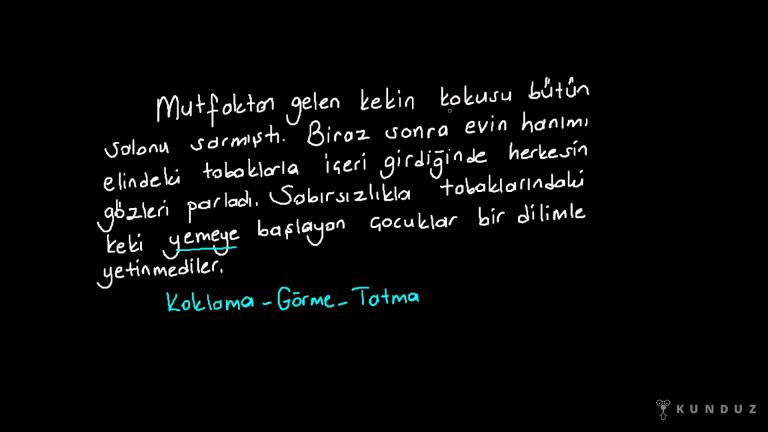 Mutfaktan gelen kekin kokusu bütün
salonu sarmıştı. Biraz sonra evin hanımı
elindeki tabaklarla içeri girdiğinde herkesin
gözleri parladı. Sabırsızlıkla tabaklarındaki
keki yemeye başlayan çocuklar bir dilimle
yetinmediler.
Koklama - Görme - Tatma
KUNDUZ